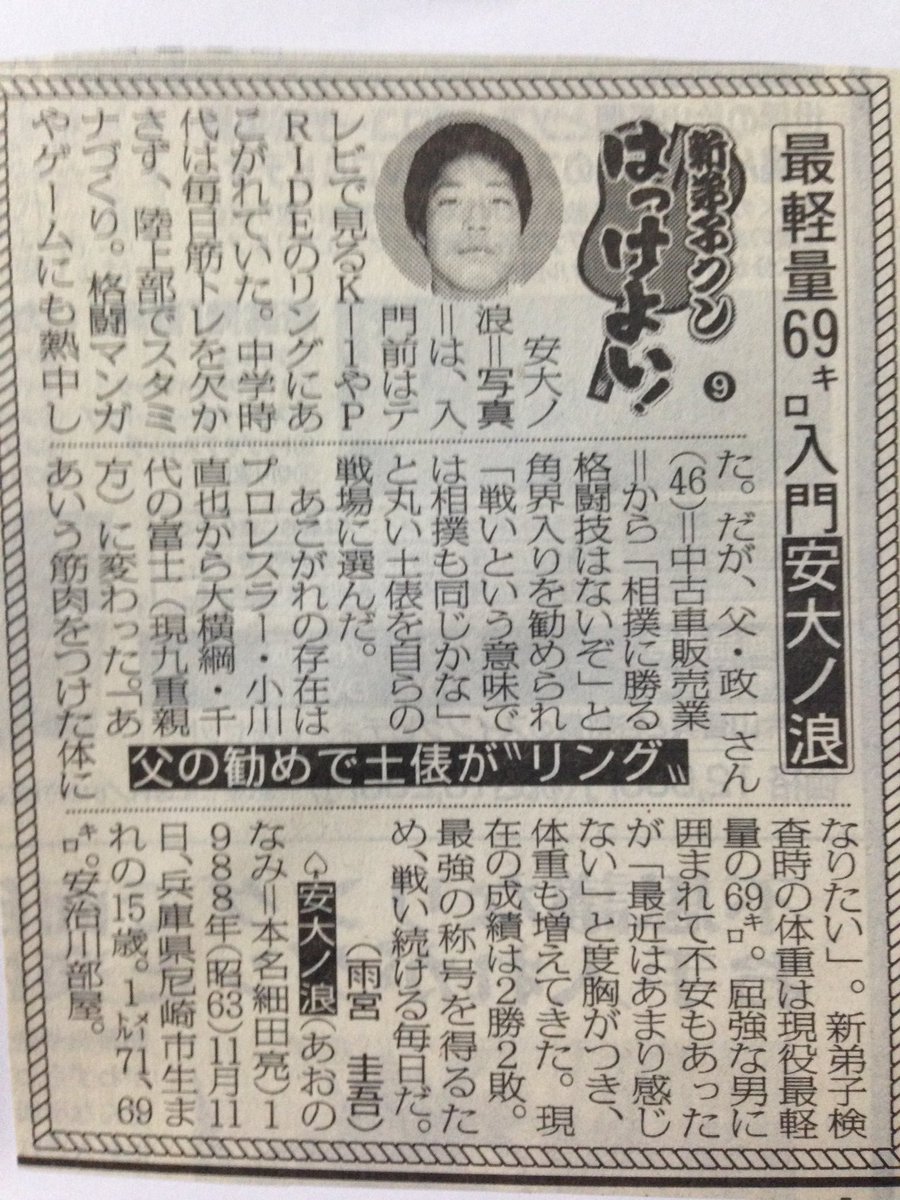 最軽量69キロ入門安大ノ浪
新弟子クン
はっけよい!
❾
安大ノ
浪＝写真
＝は、入
門前はテ
レビで見るK－1やP
RIDEのリングにあ
こがれていた。中学時
代は毎日筋トレを欠か
さず、陸上部でスタミ
ナづくり。格闘マンガ
やゲームにも熱中し
た。だが、父・政一さん
（46）＝中古車販売業
＝から「相撲に勝る
格闘技はないぞ」と
角界入りを勧められ
「戦いという意味で
は相撲も同じかな」
と丸い土俵を自らの
戦場に選んだ。
あこがれの存在は
プロレスラー・小川
直也から大横綱・千
代の富士（現九重親
方）に変わった。「あ
あいう筋肉をつけた体に
父の勧めで土俵が〝リング〟
なりたい」。新弟子検
査時の体重は現役最軽
量の69キロ。屈強な男に
囲まれて不安もあった
が「最近はあまり感じ
ない」と度胸がつき、
体重も増えてきた。現
在の成績は2勝2敗。
最強の称号を得るた
め、戦い続ける毎日だ。
（雨宮　圭吾）
♤安大ノ浪（あおの
なみ＝本名細田亮）1
988年（昭63）11月11
日、兵庫県尼崎市生ま
れの15歳。1メートル71、69
キロ。安治川部屋。